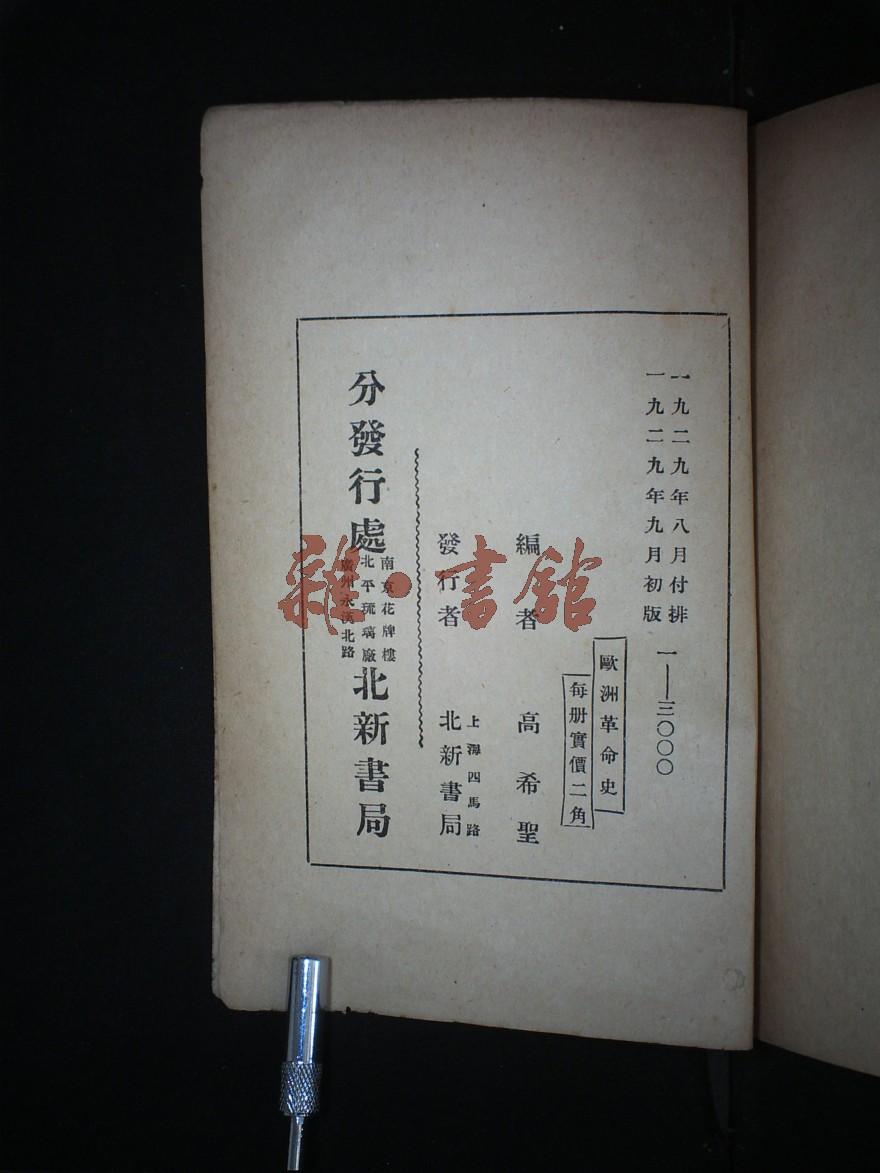 一九二九年八月付排
一九二九年九月初版
一——三〇〇〇
歐洲革命史
每册實價二角
編者 高希聖
上海四馬路
發行者 北新書局
分發行處
南京花牌樓
北平琉璃廠
廣州永漢北路
北新書局
雜·書館